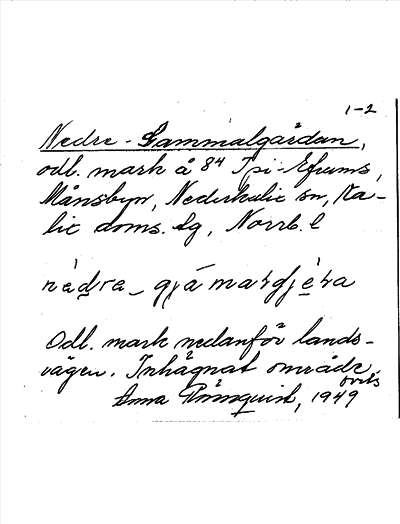 1-2
Nedre - Gammalgårdan,
odl. mark å 8⁴ Tpi-Efraims,
Månsbyn, Nederkalix sn, Ka-
lix doms. lg, Norrb. l
Odl. mark nedanför lands-
vägen. Inhägnat område
Anna Rönnquist, 1949